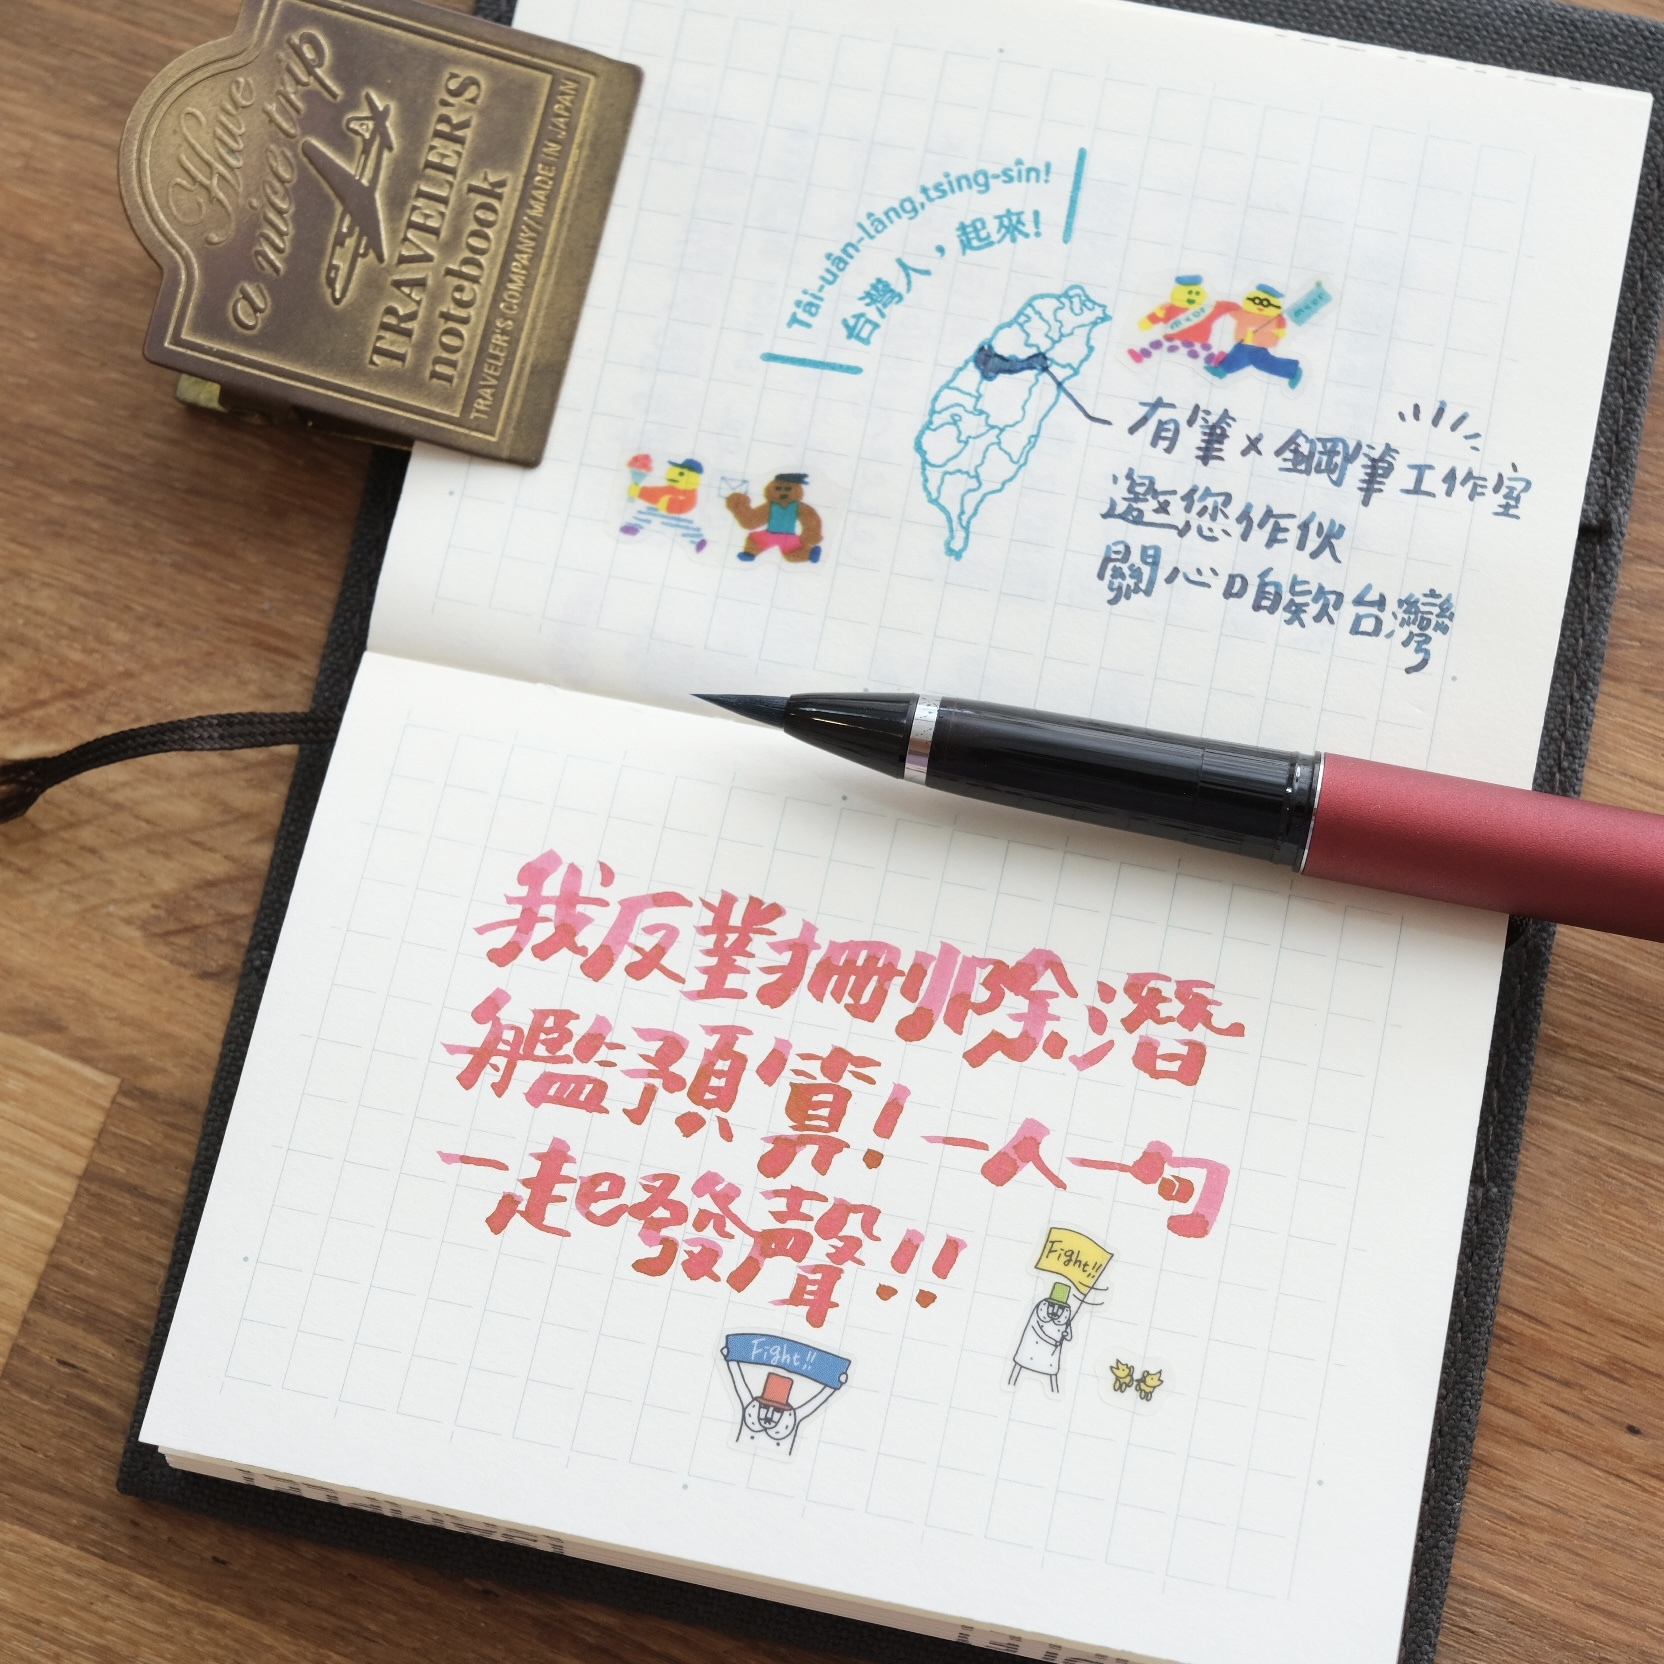 Have
a nice trip
TRAVELER'S
notebook
TRAVELER'S COMPANY/MADE IN JAPAN
Tâi-uân-lâng,tsing-sîn!
台灣人，起來!
有筆×鋼筆工作室
邀您作伙
關心咱欸台灣
我反對刪除潛
艦預算!一人一句
一起發聲!!
Fight!!
Fight!!